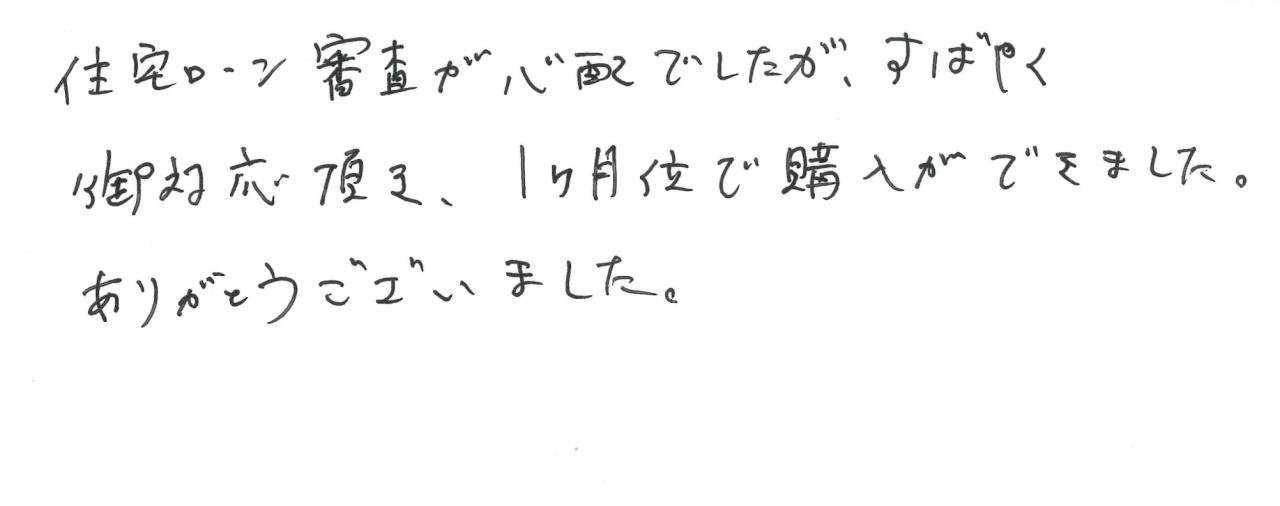 住宅ローン審査が心配でしたが、すばやく
御対応頂き、1ヶ月位で購入ができました。
ありがとうございました。